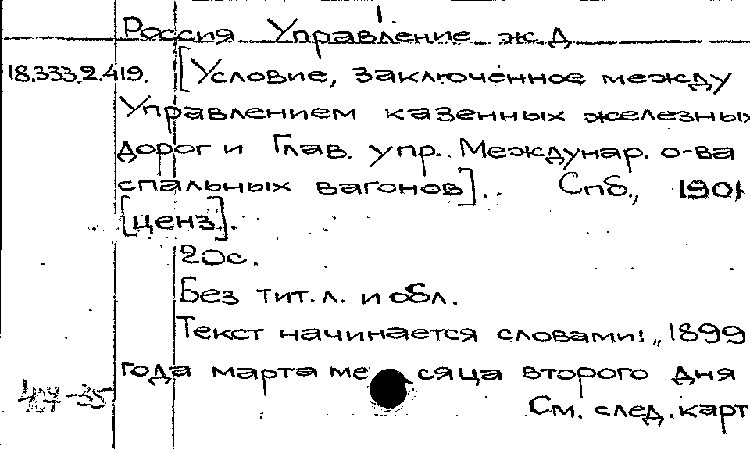 1.
Россия Управление ж.д
18.333.2.419. [Условие, заключенное между
Управлением казенных железных
дорог и Глав. упр.. Междунар. о-ва
спальных вагонов].. Спб., 1901
[ценз].
20с.
Без тит.л. и обл.
Текст начинается словами: „1899
года марта месяца второго дня
См. след. карт